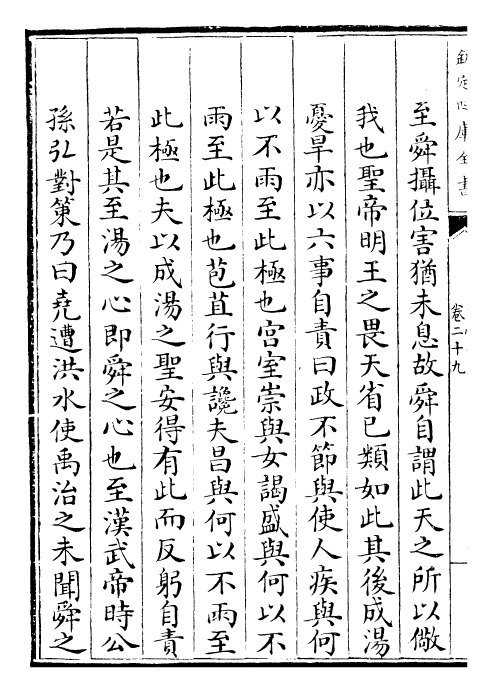 欽定四庫全書
卷二十九
至舜攝位害猶未息故舜自謂此天之所以儆
我也聖帝明王之畏天省已類如此其後成湯
憂旱亦以六事自責曰政不節與使人疾與何
以不雨至此極也宮室崇與女謁盛與何以不
雨至此極也苞苴行與讒夫昌與何以不雨至
此極也夫以成湯之聖安得有此而反躬自責
若是其至湯之心即舜之心也至漢武帝時公
孫弘對策乃曰堯遭洪水使禹治之未聞舜之